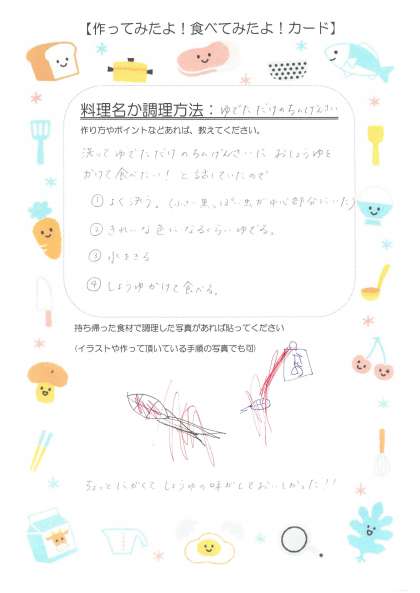 【作ってみたよ！食べてみたよ！カード】
料理名か調理方法：ゆでただけのちんげんさい
作り方やポイントなどあれば、教えてください。
洗ってゆでただけのちんげんさいに おしょうゆを
かけて食べたい！と話していたので
① よく洗う。(小さい黒っぽい虫が中心部分にいた)
② きれいな色になるくらいゆでる。
③ 水をきる
④ しょうゆかけて食べる。
持ち帰った食材で調理した写真があれば貼ってください
(イラストや作って頂いている手順の写真でも可)
ちょっとにがくて しょうゆの味がしておいしかった!!